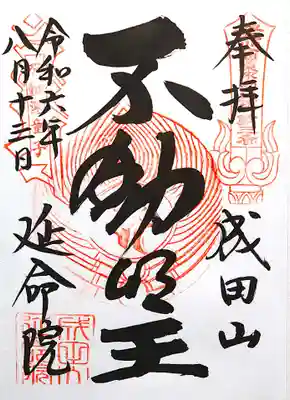 奉拝
成田山
不動明王
令和六年
八月十三日
延命院